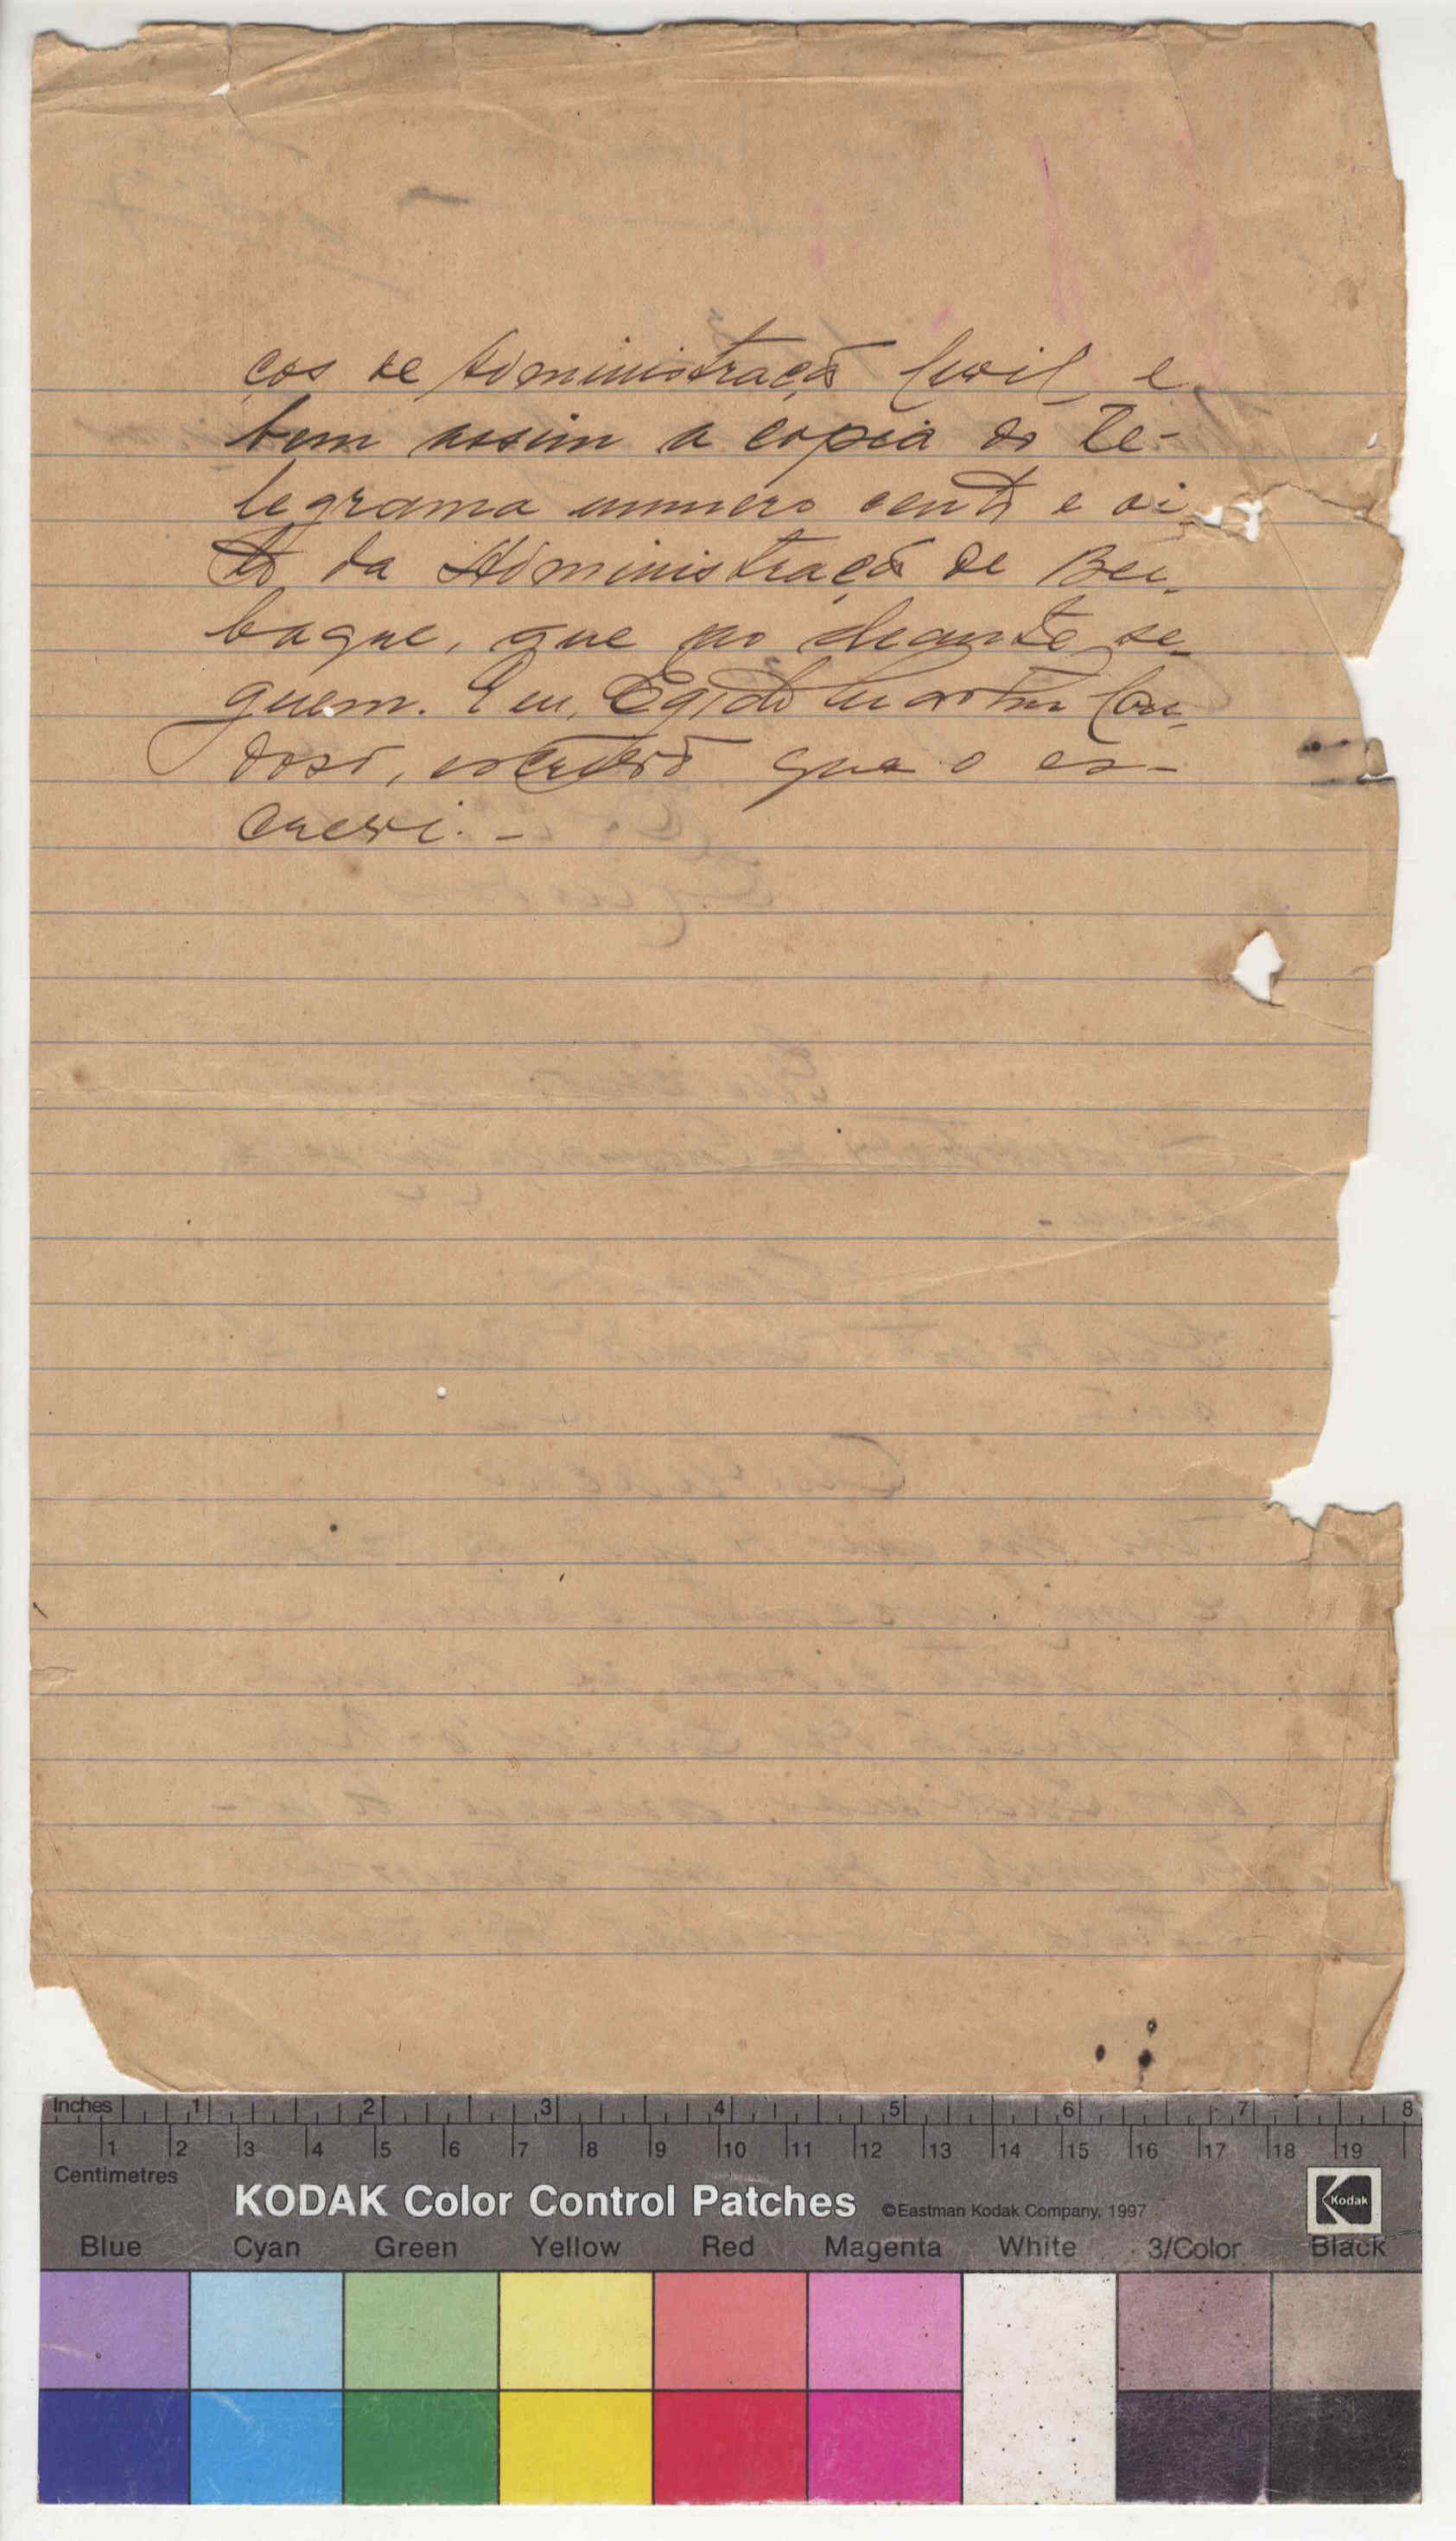 ços de Administração Civil, e
bem assim a copia do te-
legrama numero cento e oi
to da Administração de Bu-
baque, que ao deante se-
guem. Eu, Egidio Martins Car-
doso, escrivão que o es-
crevi. -
Inches 1 2 3 4 5 6 7 8
1 2 3 4 5 6 7 8 9 10 11 12 13 14 15 16 17 18 19
Centimetres
KODAK Color Control Patches ©Eastman Kodak Company, 1997 Kodak
Blue Cyan Green Yellow Red Magenta White 3/Color Black